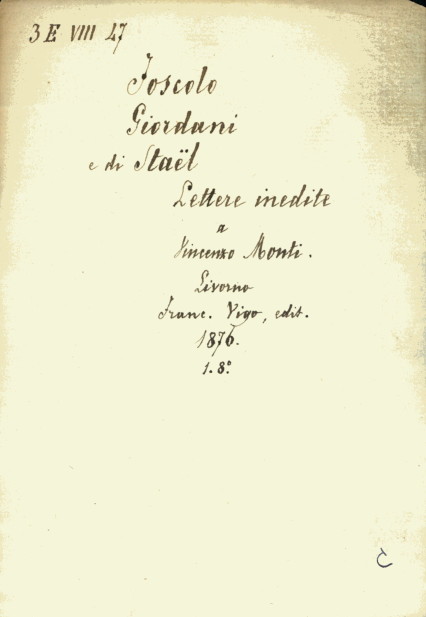 3 E VIII 47
Foscolo
Giordani
e di Staël
Lettere inedite
a
Vincenzo Monti.
Livorno
Franc. Vigo, edit.
1876.
1. 8.°